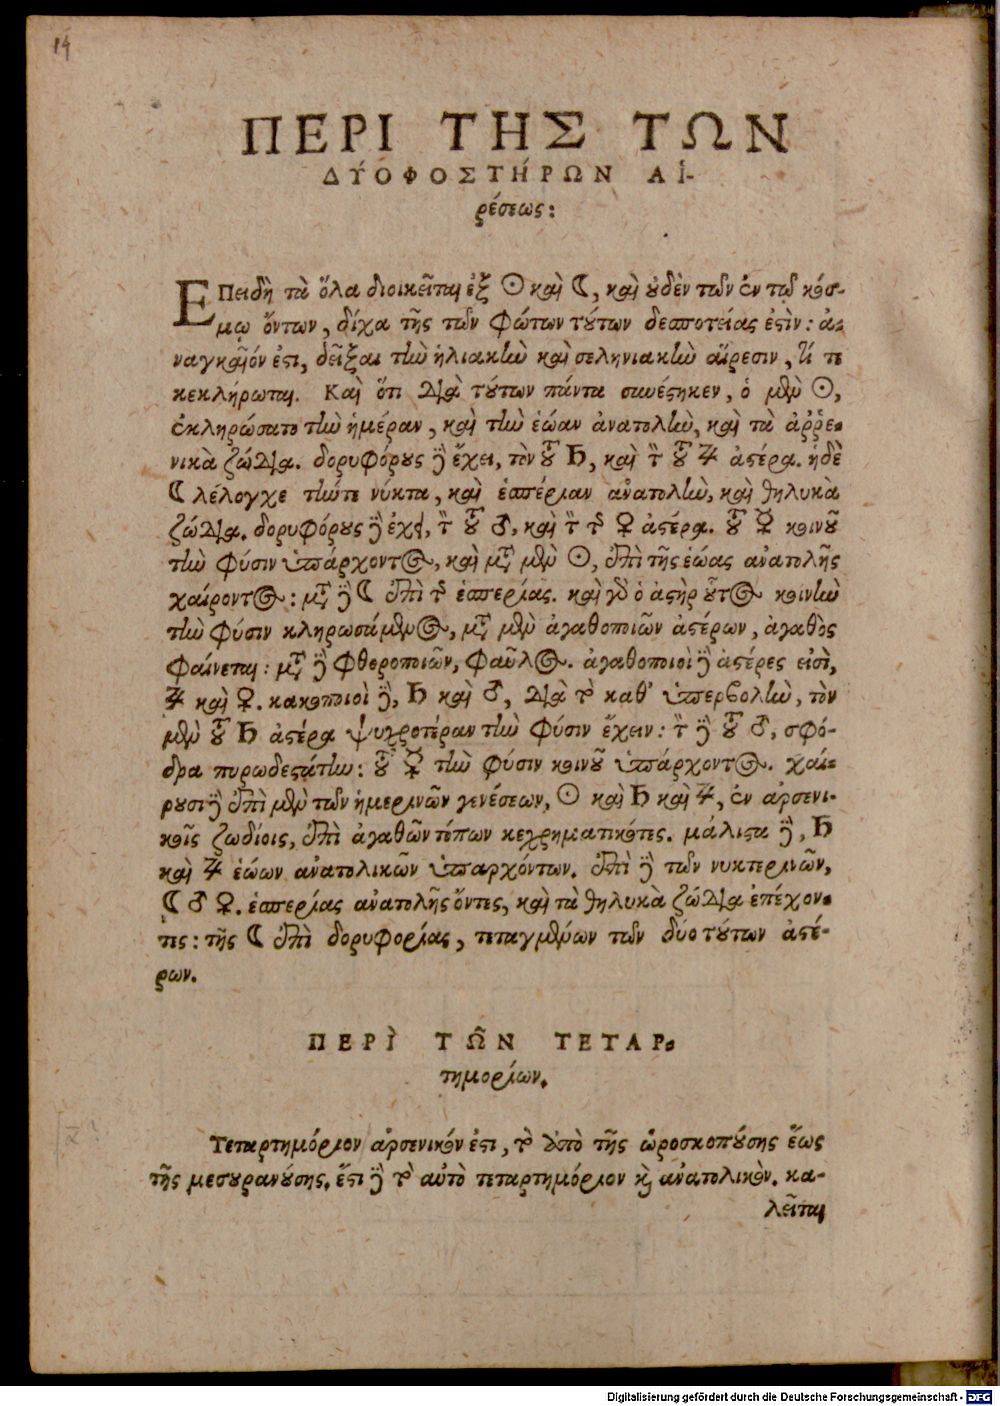 14
ΠΕΡΙ ΤΗΣ ΤΩΝ
ΔΎΟΦΟΣΤΉΡΩΝ ΑἹ-
ρέσεως:
ΕΠειδὴ τὰ ὅλα διοικεῖται ἐξ ☉ καὶ ☾, καὶ οὐδὲν τῶν ἐν τῷ κόσ-
μῳ ὄντων, δίχα τῆς τῶν φώτων τούτων δεσποτείας ἐστὶν: ἀ-
ναγκαῖόν ἐστι, δεῖξαι τὴν ἡλιακὴν καὶ σεληνιακὴν αἵρεσιν, τί τε
κεκλήρωται. Καὶ ὅτι διὰ τούτων πάντα συνέστηκεν, ὁ μὲν ☉,
ἐκληρώσατο τὴν ἡμέραν, καὶ τὴν ἑῴαν ἀνατολὴν, καὶ τὰ ἀῤῥε-
νικὰ ζώδια. δορυφόρους δὲ ἔχει, τὸν τοῦ ♄, καὶ τὸν τοῦ ♃ ἀστέρα. ἡ δὲ
☾ λέλογχε τήν τε νύκτα, καὶ ἑσπέριαν ἀνατολὴν, καὶ θηλυκὰ
ζώδια. δορυφόρους δὲ ἔχει, τὸν τοῦ ♂, καὶ τὸν τῆς ♀ ἀστέρα. τοῦ ☿ κοινοῦ
τὴν φύσιν ὑπάρχοντος, καὶ μετὰ μὲν ☉, ἐπὶ τῆς ἑῴας ἀνατολῆς
χαίροντος: μετὰ δὲ ☾ ἐπὶ τῆς ἑσπερίας. καὶ γὰρ ὁ ἀστὴρ οὗτος κοινὴν
τὴν φύσιν κληρωσάμενος, μετὰ μὲν ἀγαθοποιῶν ἀστέρων, ἀγαθὸς
φαίνεται: μετὰ δὲ φθεροποιῶν, φαῦλος. ἀγαθοποιοὶ δὲ ἀστέρες εἰσὶ,
♃ καὶ ♀. κακοποιοὶ δὲ, ♄ καὶ ♂, διὰ τὸ καθ' ὑπερβολὴν, τὸν
μὲν τοῦ ♄ ἀστέρα ψυχροτέραν τὴν φύσιν ἔχειν: τὸν δὲ τοῦ ♂, σφό-
δρα πυρωδεστάτην: τοῦ ☿ τὴν φύσιν κοινοῦ ὑπάρχοντος. χαί-
ρουσι δὲ ἐπὶ μὲν τῶν ἡμερινῶν γενέσεων, ☉ καὶ ♄ καὶ ♃, ἐν ἀρσενι-
κοῖς ζωδίοις, ἐπὶ ἀγαθῶν τόπων κεχρηματικότες. μάλιστα δὲ, ♄
καὶ ♃ ἑῴων ἀνατολικῶν ὑπαρχόντων. ἐπὶ δὲ τῶν νυκτερινῶν,
☾ ♂ ♀. ἑσπερίας ἀνατολῆς ὄντες, καὶ τὰ θηλυκὰ ζώδια ἐπέχον-
τες: τῆς ☾ ἐπὶ δορυφορίας, τεταγμένων τῶν δύο τούτων ἀστέ-
ρων.
ΠΕΡῚ ΤΩ͂Ν ΤΕΤΑΡ-
τημορίων.
Τεταρτημόριον ἀρσενικόν ἐστι, τὸ ἀπὸ τῆς ὡροσκοπούσης ἕως
τῆς μεσουρανούσης. ἔστι δὲ τὸ αὐτὸ τεταρτημόριον καὶ ἀνατολικὸν. κα-
λεῖται
Digitalisierung gefördert durch die Deutsche Forschungsgemeinschaft - DFG